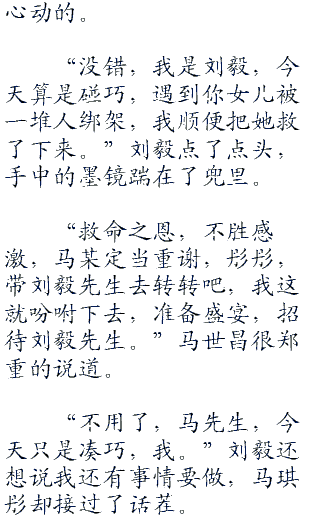 心动的。
“没错，我是刘毅，今
天算是碰巧，遇到你女儿被
一堆人绑架，我顺便把她救
了下来。”刘毅点了点头，
手中的墨镜踹在了兜里。
“救命之恩，不胜感
激，马某定当重谢，彤彤，
带刘毅先生去转转吧，我这
就吩咐下去，准备盛宴，招
待刘毅先生。”马世昌很郑
重的说道。
“不用了，马先生，今
天只是凑巧，我。”刘毅还
想说我还有事情要做，马琪
彤却接过了话茬。